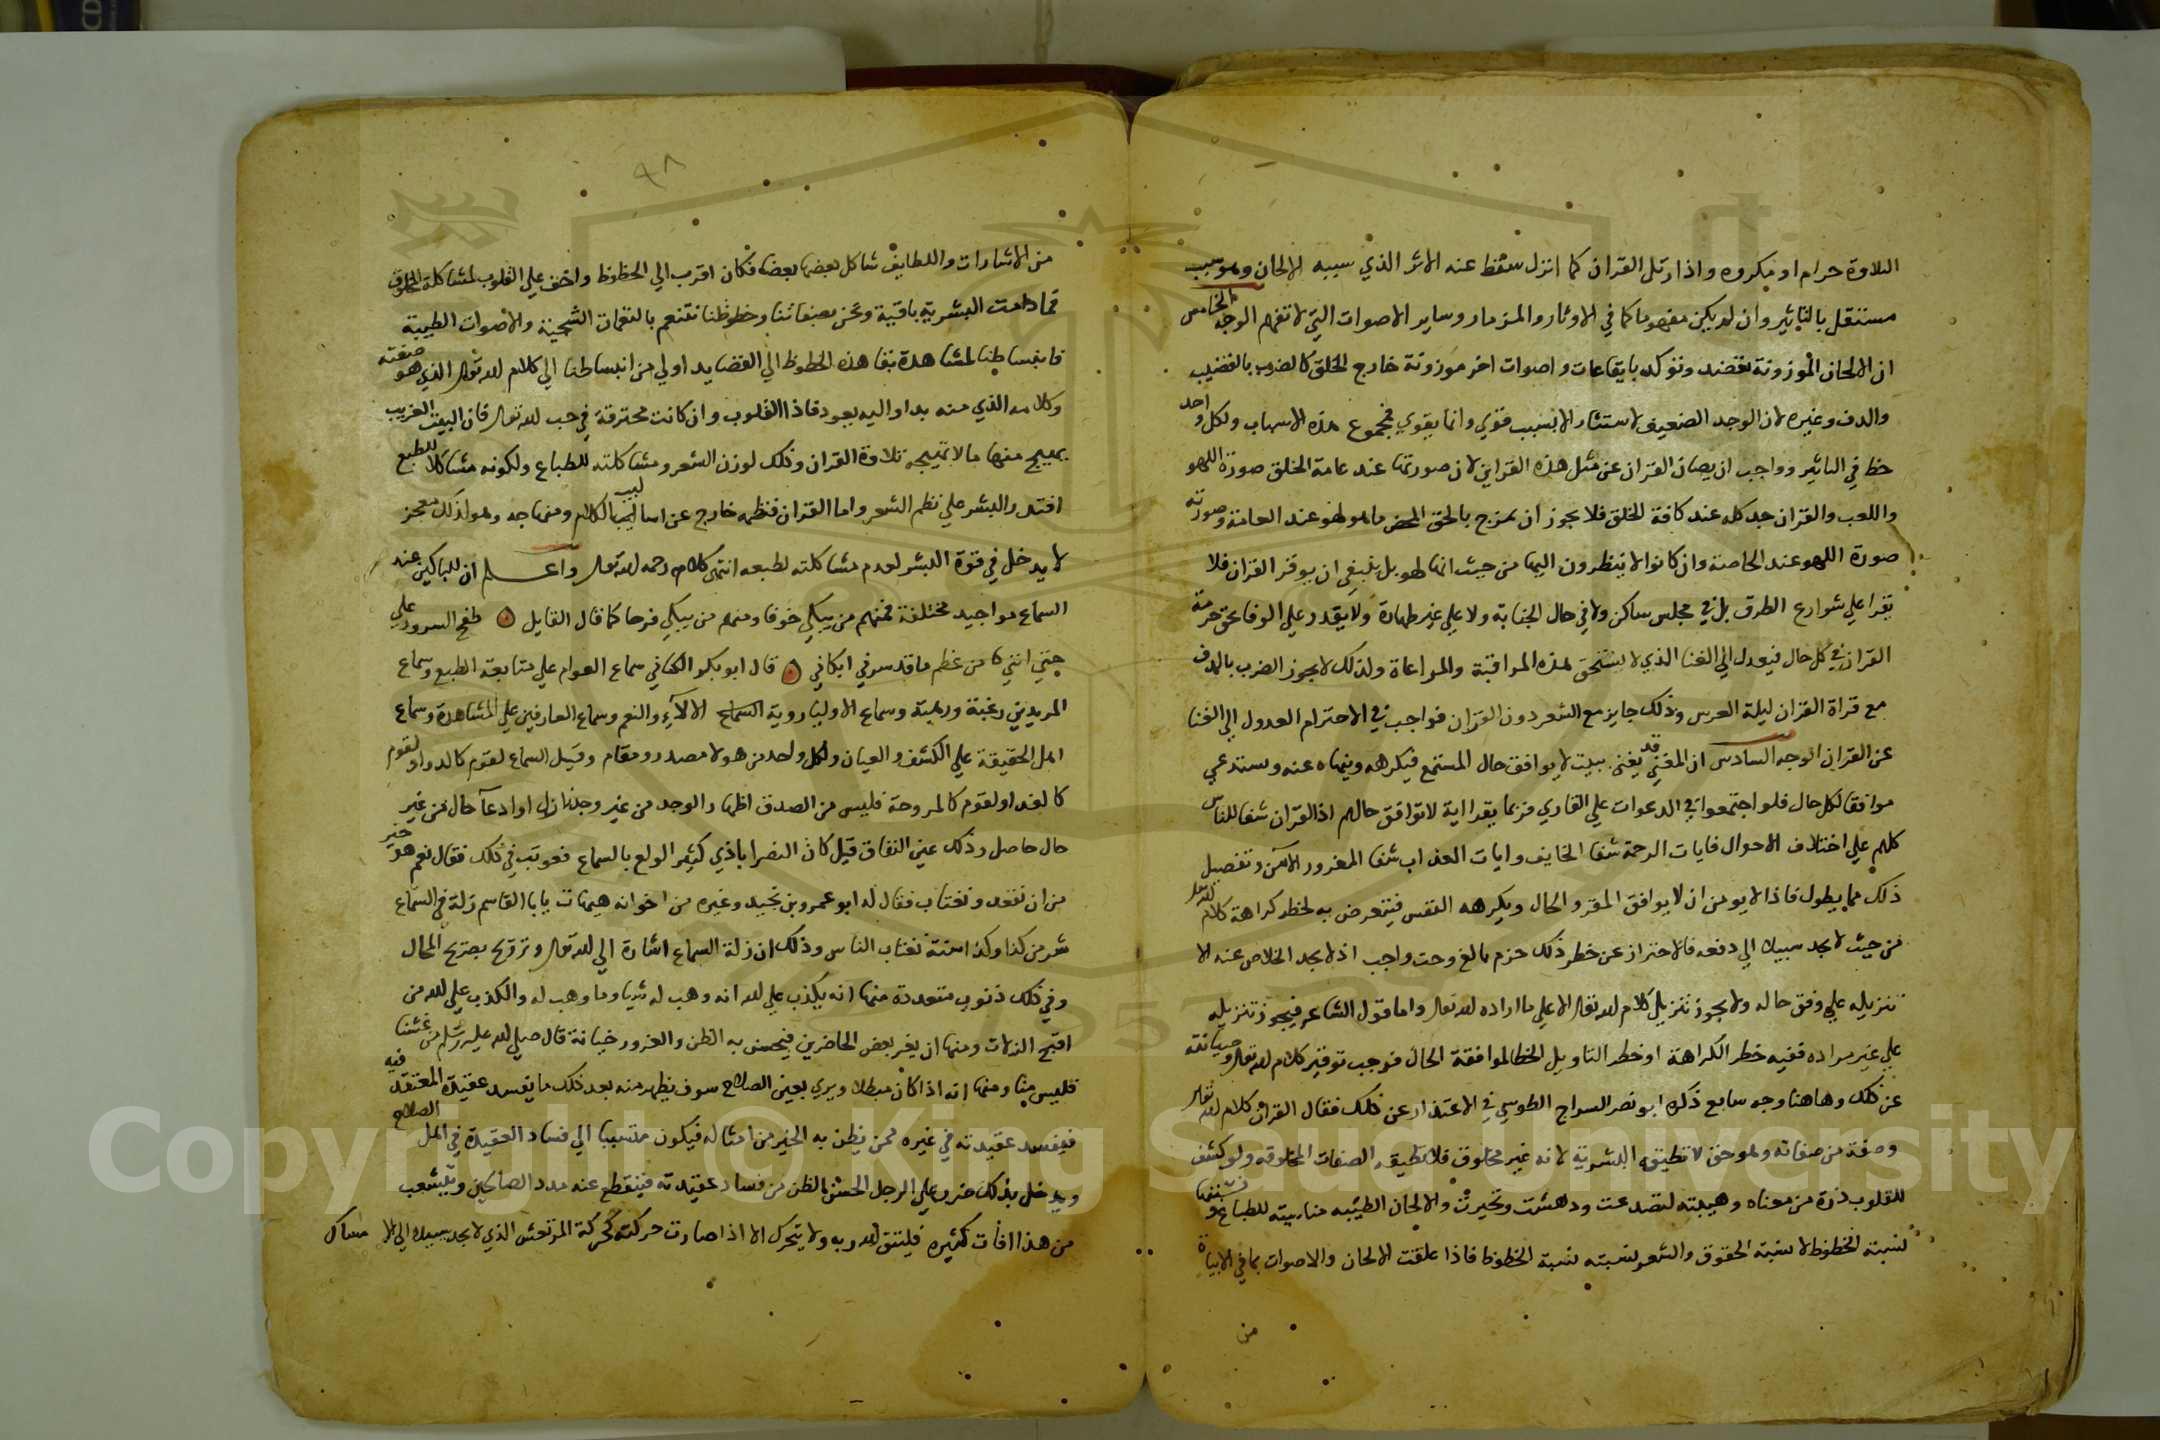 التلاوة حرام او مكروه واذا رتل القران كما انزل سقط عنه الاثر الذي سببه الالحان وهو سبب
مستقل بالتاثير وان لم يكن مفهوما كما في الاوتار والمزمار وساير الاصوات التي لا تفهم الوجه الخامس
ان الالحان الموزونة تعضد وتوكد بايقاعات واصوات اخر موزونة خارج الحلق كالضرب بالقضيب
والدف وغيره لان الوجد الضعيف لا يستثار الا بسبب قوي وانما يقوي بمجموع هذه الاسباب ولكل واحد
حظ في التاثير وواجب ان يصان القران عن مثل هذه القراين لان صورتها عند عامة الخلق صورة اللهو
واللعب والقران جد كله عند كافة الخلق فلا يجوز ان يمزج بالحق المحض ما هو لهو عند العامة وصورته
صورة اللهو عند الخاصة وان كانوا لا ينظرون اليها من حيث انها لهو بل ينبغي ان يوقر القران فلا
يقرا علي شوارع الطرق بل في مجلس ساكن ولا في حال الجنابة ولا علي غير طهارة ولا يقدر علي الوفا بحق حرمة
القران في كل حال فيعدل الي الغنا الذي لا يستحق هذه المراقبة والمراعاة ولذلك لا يجوز الضرب بالدف
مع قراة القران ليلة العرس وذلك جايز مع الشعر دون القران فواجب في الاحترام العدول الي الغنا
عن القران الوجه السادس ان المغني قد يغني ببيت لا يوافق حال المستمع فيكرهه وينهاه عنه ويستدعي
موافقا لكل حال فلو اجتمعوا في الدعوات علي القاري فربما يقرا اية لا توافق حالهم اذ القران شفا للناس
كلهم علي اختلاف الاحوال فايات الرحمة شفا الخايف وايات العذاب شفا المغرور الامن وتفصيل
ذلك مما يطول فاذا لا يومن ان لا يوافق المقرو الحال ويكرهه النفس فيتعرض به لخطر كراهة كلام الله تعالى
من حيث لا يجد سبيلا الي دفعه فالاحتراز عن خطر ذلك حزم بالغ وحتم واجب اذ لا يجد الخلاص عنه الا
تنزيله علي وفق حاله ولا يجوز تنزيل كلام الله تعالى الا علي ما اراده الله تعالى واما قول الشاعر فيجوز تنزيله
علي غير مراده ففيه خطر الكراهة او خطر التاويل الخطا لموافقة الحال فوجب توقير كلام الله تعالى وصيانته
عن ذلك وهاهنا وجه سابع ذكره ابو نصر السراج الطوسي في الاعتذار عن ذلك فقال القران كلام الله تعالى
وصفة من صفاته وهو حق لا تطيقه البشرية لانه غير مخلوق فلا تطيقه الصفات المخلوقه ولو كشف
للقلوب ذرة من معناه وهيبته لتصدعت ودهشت وتحيرت والالحان الطيبه مناسبته للطباع ونسبتها
نسبة الحظوظ لا نسبة الحقوق والشعر نسبته نسبة الحظوظ فاذا علقت الالحان والاصوات بما في الابيات
من
٩٨
من الاشارات واللطايف شاكل بعضها بعضا فكان اقرب الي الحظوظ واخف علي القلوب لمشاكلة المخلوق
فما دامت البشرية باقية ونحن بصفاتنا وحظوظنا نتنعم بالنغمات الشجية والاصوات الطيبة
فانبساطنا لمشاهدة بقا هذه الحظوظ الي القصايد اولي من انبساطنا الي كلام الله تعالى الذي هو صفته
وكلامه الذي منه بدا واليه يعود فاذا القلوب وان كانت محترقة في حب الله تعالى فان البيت الغريب
يهيج منها ما لا تهيجه تلاوة القران وذلك لوزن الشعر ومشاكلته للطباع ولكونه مشاكلا للطبع
اقتدر البشر علي نظم الشعر واما القران فنظمه خارج عن اساليب الكلام ومنهاجه وهو لذلك معجز
لا يدخل في قوة البشر لعدم مشاكلته لطبعه انتهى كلامه رحمه الله تعالى واعلم ان للباكين عند
السماع مواجيد مختلفة فمنهم من يبكي خوفا ومنهم من يبكي فرحا كما قال القايل طفح السرور علي
حتي انني من عظم ما قد سرني ابكاني قال ابو بكر الكتاني سماع العوام علي متابعة الطبع وسماع
المريدين رغبة ورهبة وسماع الاوليا روية الالآء والنعم وسماع العارفين علي المشاهدة وسماع
اهل الحقيقة علي الكشف والعيان ولكل واحد من هولا مصدر ومقام وقيل السماع لقوم كالدوا ولقوم
كالغذا ولقوم كالمروحة فليس من الصدق اظهار الوجد من غير وجد نازل او ادعآ حال من غير
حال حاصل وذلك عين النفاق قيل كان النصراباذي كثير الولع بالسماع فعوتب في ذلك فقال نعم هو خير
من ان نقعد ونغتاب فقال له ابو عمرو بن نجيد وغيره من اخوانه هيهات يا ابا القاسم زلة في السماع
شر من كذا وكذا سنة نغتاب الناس وذلك ان زلة السماع اشارة الي الله تعالى وترويح بصريح المحال
وفي ذلك ذنوب متعددة منها انه يكذب علي الله انه وهب له شيا وما وهب له والكذب علي الله من
اقبح الزلات ومنها ان يغر بعض الحاضرين فيحسن به الظن والغرور خيانة قال صلى الله عليه وسلم من غشنا
فليس منا ومنها انه اذا كان مبطلا ويري بعين الصلاح سوف يظهر منه بعد ذلك ما يفسد عقيدة المعتقد فيه
فيفسد عقيدته في غيره ممن يظن به الخير من امثاله فيكون متسببا الي فساد العقيدة في اهل الصلاح
ويدخل بذلك ضرر علي الرجل الحسن الظن من فساد عقيدته فينقطع عنه مدد الصالحين ويتشعب
من هذا افات كثيره فليتق الله ربه ولا يتحرك الا اذا صارت حركته كحركة المرتعش الذي لا يجد سبيلا الي الامساك
Copyright © King Saud University